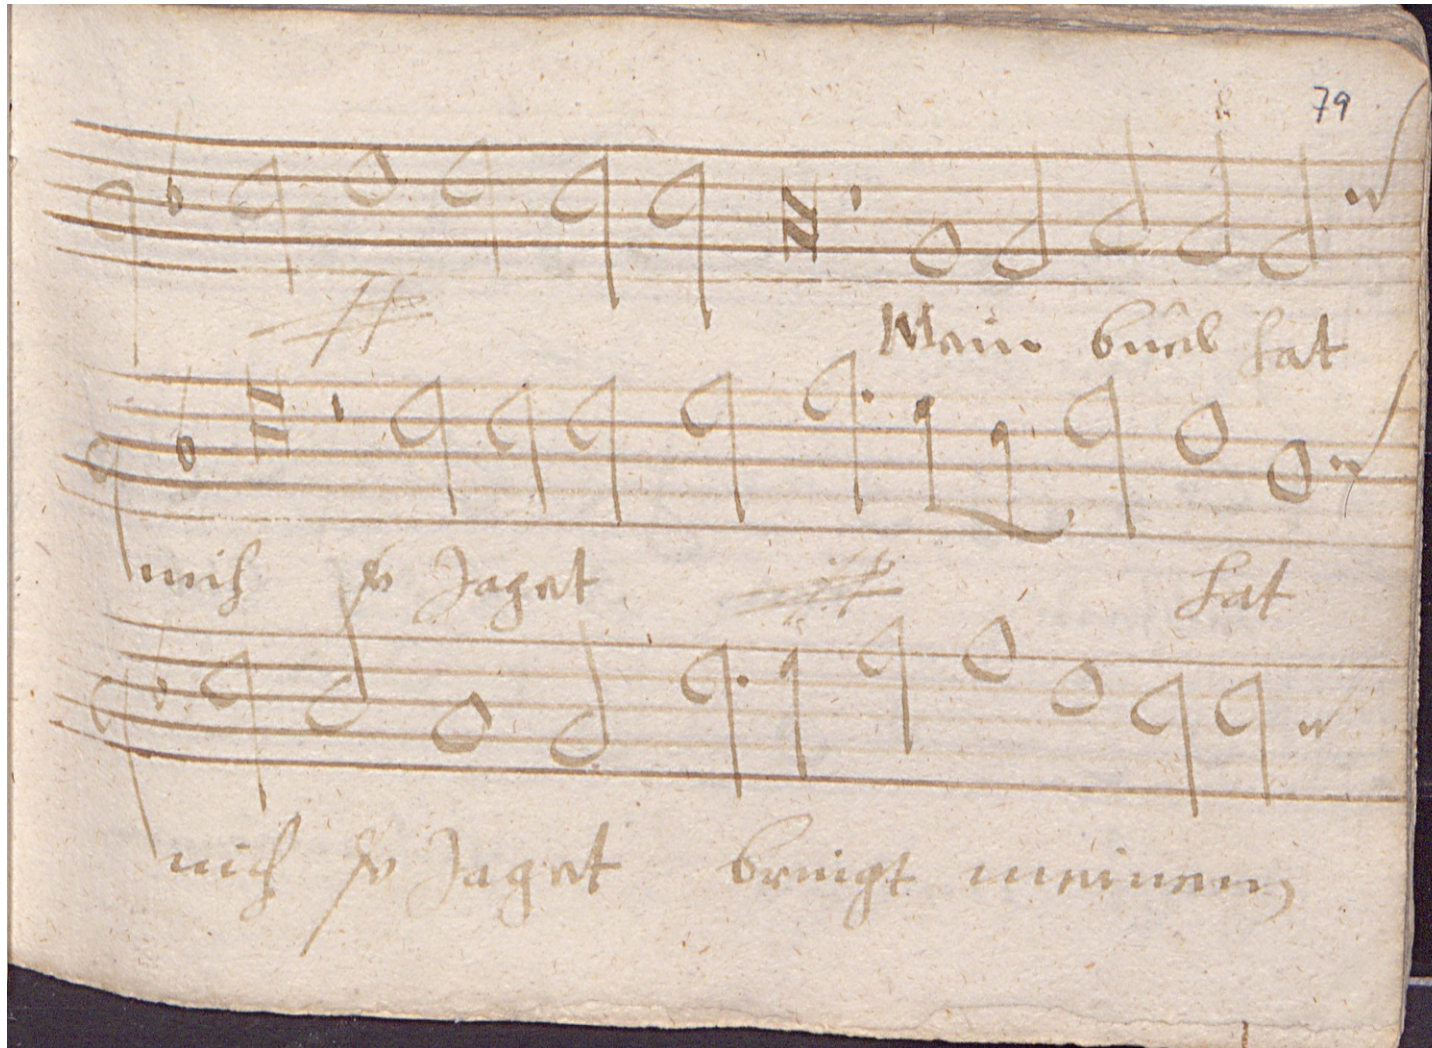 79
Mein buel hat
mich Jaget hat
mich Jaget bringt meinem